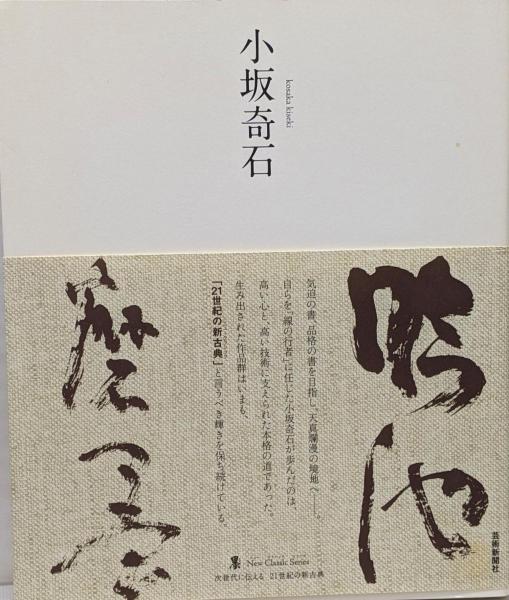 小坂奇石
kosaka kiseki
気迫の書、品格の書を目指し、天真爛漫の境地へ――。
自らを「線の行者」に任じた小坂奇石が歩んだのは、
高い心と、高い技術に支えられた本格の道であった。
生み出された作品群はいまも、
「21世紀の新古典」と言うべき輝きを保ち続けている。
墨 New Classic Series
次世代に伝える 21世紀の新古典
芸術新聞社